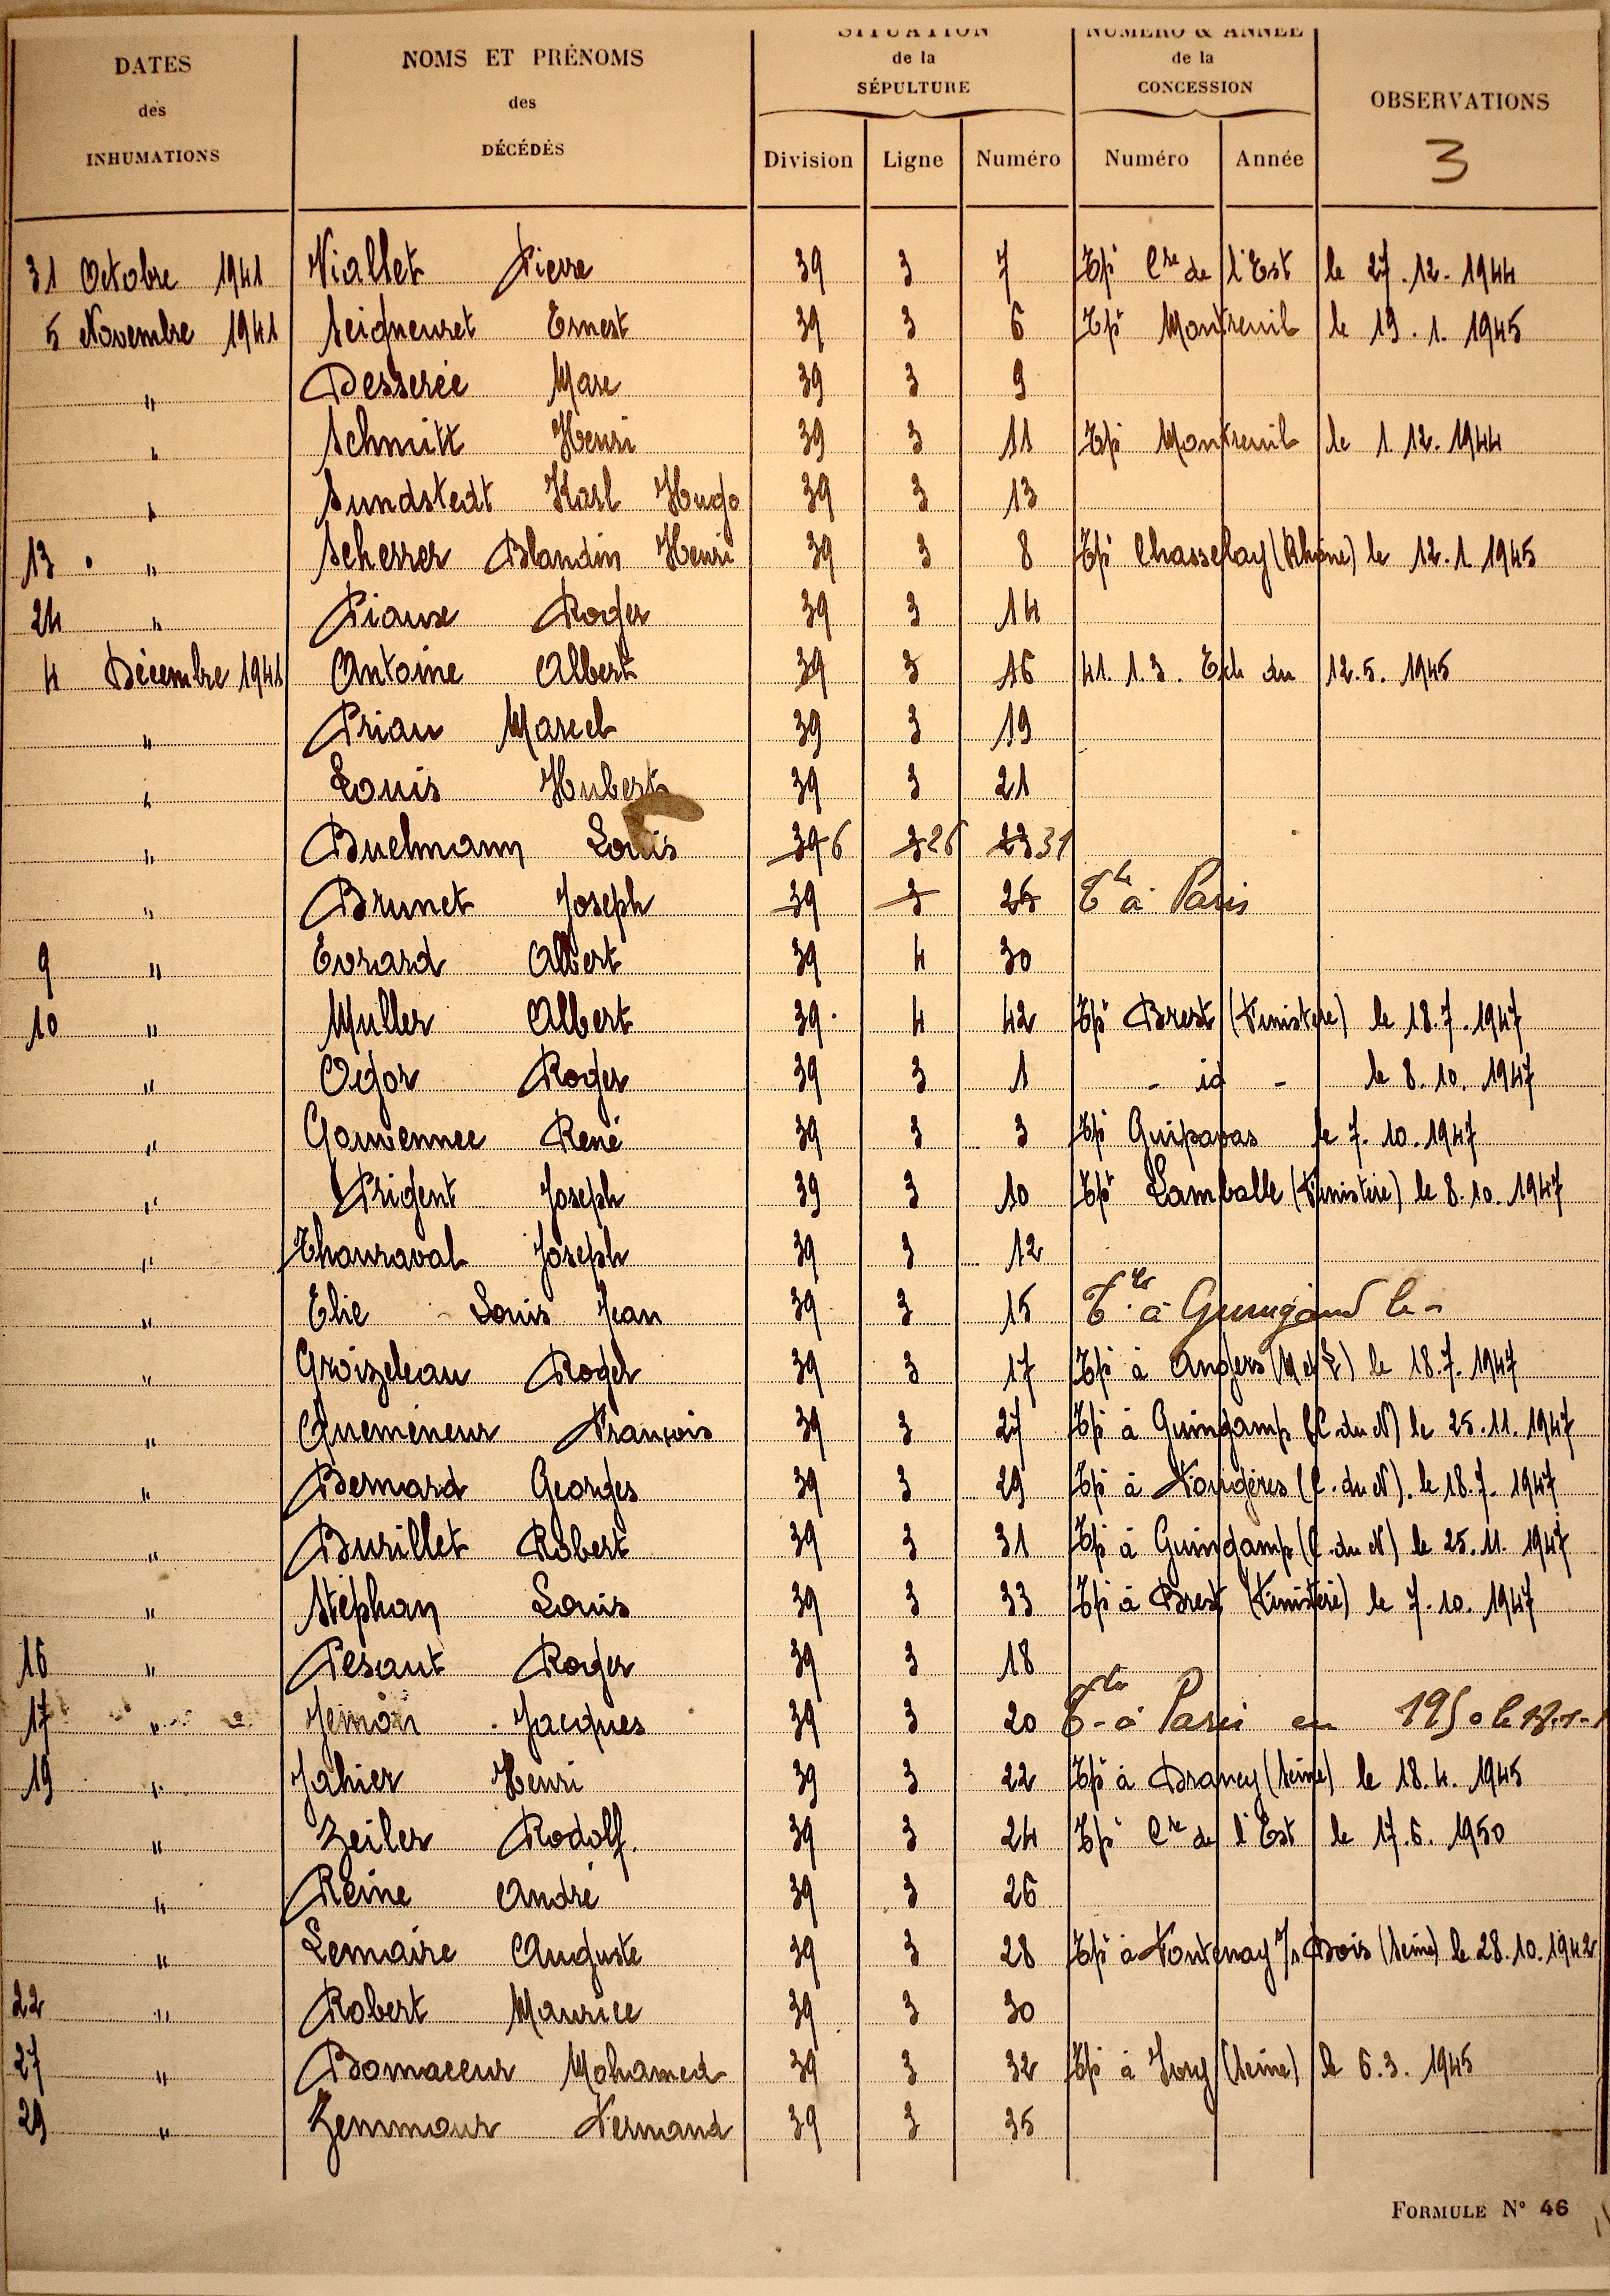 DATES des INHUMATIONS
NOMS ET PRÉNOMS des DÉCÉDÉS
SITUATION de la SÉPULTURE
NUMÉRO & ANNÉE de la CONCESSION
OBSERVATIONS
3
Division Ligne Numéro Numéro Année
31 Octobre 1941 Viallet Pierre 39 3 7 Tpé Cre de l'Est le 27.12.1944
5 Novembre 1941 Seigneuret Ernest 39 3 6 Tpé Montreuil le 19.1.1945
" Desserée Marc 39 3 9
" Schmitt Henri 39 3 11 Tpé Montreuil le 1.12.1944
" Sundstedt Karl Hugo 39 3 13
13 " Scherrer Blandin Henri 39 3 8 Tpé Chasselay (Rhône) le 12.1.1945
24 " Piause Roger 39 3 14
4 Décembre 1941 Antoine Albert 39 3 16 41.1.3. Ech du 12.5.1945
" Priau Marcel 39 3 19
" Louis Hubert 39 3 21
" Buelmann Louis 39 6 3 26 23 31
" Brunet Joseph 39 3 25 à Paris
9 " Evrard Albert 39 4 30
10 " Muller Albert 39 4 42 Tpé Brest (Finistère) le 18.7.1947
" Ogor Roger 39 3 1 - id - le 8.10.1947
" Gouvennec René 39 3 3 Tpé Guipavas le 7.10.1947
" Prigent Joseph 39 3 10 Tpé Lamballe (Finistère) le 8.10.1947
" Thouraval Joseph 39 3 12
" Elie Louis Jean 39 3 15 à Guingand le -
" Groizeleau Roger 39 3 17 Tpé à Angers (M et L) le 18.7.1947
" Quemeneur François 39 3 27 Tpé à Guingamp (C. du N) le 25.11.1947
" Bernard Georges 39 3 29 Tpé à Fougères (C. du N). le 18.7.1947
" Burillet Robert 39 3 31 Tpé à Guingamp (C. du N) le 25.11.1947
" Stéphan Louis 39 3 33 Tpé à Brest (Finistère) le 7.10.1947
16 " Pesant Roger 39 3 18
17 " Jémon Jacques 39 3 20 à Paris en 1950 le
19 " Jahier Henri 39 3 22 Tpé à Drancy (Seine) le 18.4.1945
" Zeiler Rodolf. 39 3 24 Tpé Cre de l'Est le 17.6.1950
" Reine André 39 3 26
" Lemaire Auguste 39 3 28 Tpé à Fontenay s/s Bois (Seine) le 28.10.1942
22 " Robert Maurice 39 3 30
27 " Bomaceur Mohamed 39 3 32 Tpé à Ivry (Seine) le 6.3.1945
29 " Zemmour Fernand 39 3 35
FORMULE N° 46